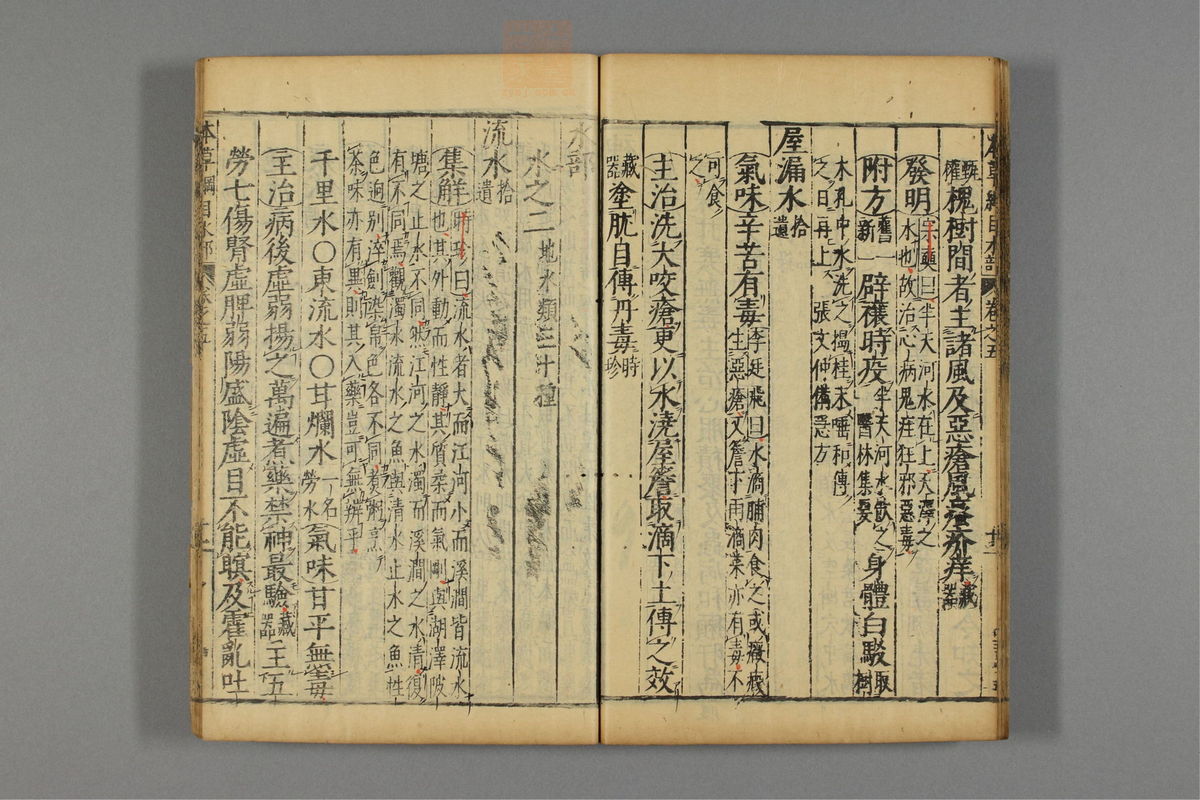 本草綱目水部 卷之五
槐樹間者主諸風及惡瘡風瘙疥痒藏器
發明宗奭曰半天河水在上天澤之
水也故治心病鬼疰狂邪惡毒
附方舊一新一辟禳時疫半天河水飲之醫林集要身體白駁取樹
木孔中水洗之搗桂末唾和傅
之日再上張文仲備急方
屋漏水拾遺
氣味辛苦有毒李廷飛曰水滴脯肉食之成癥瘕
生惡瘡又簷下雨滴菜亦有毒不
可食
之
主治洗犬咬瘡更以水澆屋簷取滴下土傅之效
藏器塗胱目傅丹毒時珍
水部
水之二地水類三十種
流水拾遺
集解時珍曰流水者大而江河小而溪澗皆流水
也其外動而性靜其質柔而氣剛與湖澤陂
塘之止水不同然江河之水濁而溪澗之水清復
有不同焉觀濁水流水之魚與清水止水之魚性
色迥別淬劍染帛色各不同煑粥烹
茶味亦有異則其入藥豈可無辨乎
千里水〇東流水〇甘爛水一名勞水氣味甘平無毒
主治病後虛弱揚之萬遍煮藥禁神最驗藏器主五
勞七傷腎虛脾弱陽盛陰虛目不能瞑及霍亂吐
本草綱目水部 卷之五